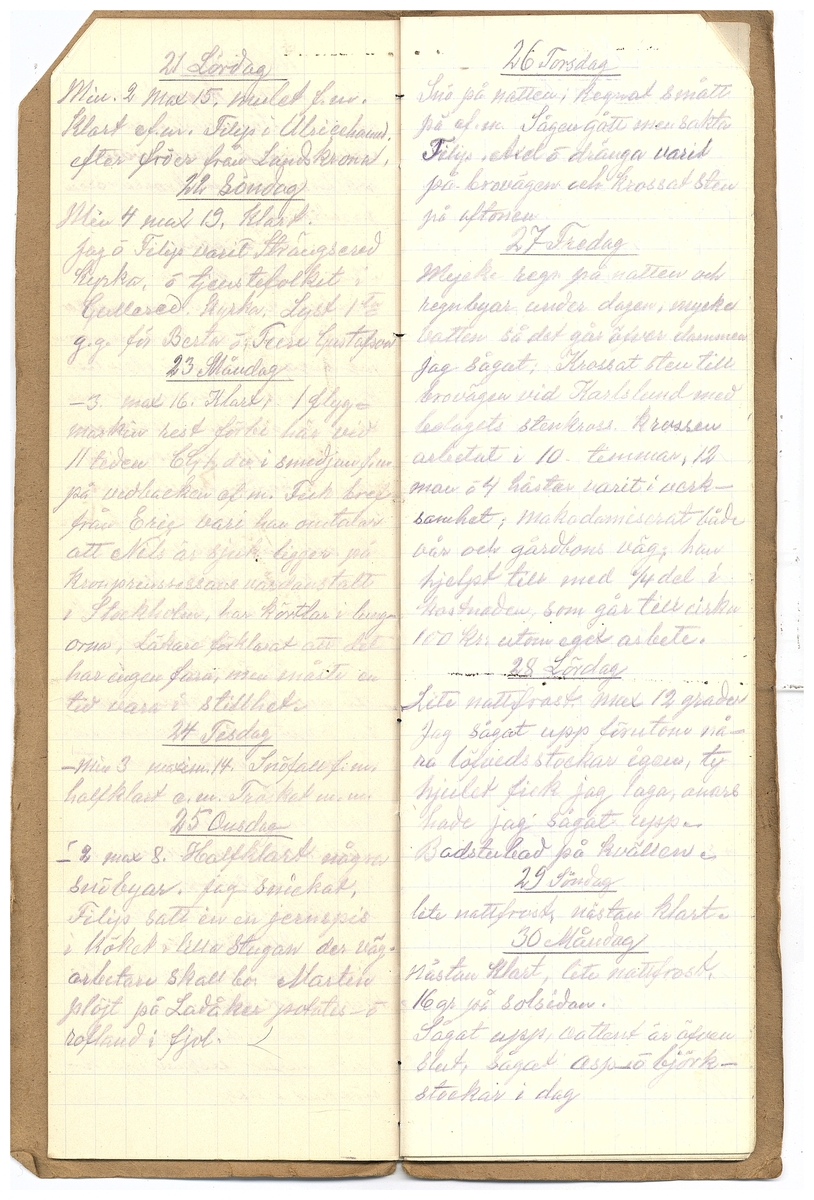 21 Lördag
Min. 2 max 15, mulet f.m.
Klart ef.m. Filip i Ulricehamn.
efter fröer från Landskrona.
22 Söndag
Min 4 max 19, Klart.
jag ö Filip varit Strängsered
Kyrka, ö tjenstefolket i
Gullered. Kyrka. Lyst 1sta
g.g. för Berta ö Gustafsson
23 Måndag
-3. max 16. Klart, 1 flyg=
maskin rest förbi här vid
11 tiden i smedjan f.m.
på vedbacken ef.m. Fick brev
från Eric vari han omtalar
att Nils är sjuk, ligger på
Kronprinsessans vårdanstalt
i Stockholm, har körtlar i lung-
orna, Läkare förklarat att det
har ingen fara, men måste en
tid vara i stillhet.
24 Tisdag
-Min 3 maxim. 14. Snöfall f.m.
halfklart e.m. Tröskat m.m.
25 Onsdag
-2 max 8. Halfklart några
snöbyar. jag snickat,
Filip satt in en jernspis
i Köket i lilla Stugan der väg-
arbetare skall bo. Martin
plöjt på Ladåker potatis- ö
rofland i fjol.
26 Torsdag
Snö på natten, Regnat smått
på ef.m. Sågen gått men sakta
Filip, Axel ö dränga varit
på brovägen och Krossat sten
på aftonen
27 Fredag
Mycke regn på natten och
regnbyar under dagen, mycke
vatten så det går öfver dammen
jag sågat, Krossat sten till
brovägen vid Karlslund med
bolagets stenkross. Krossen
arbetat i 10 timmar, 12
man ö 4 hästar varit i verk-
samhet; makadamiserat både
vår och gårdbons väg, han
hjelpt till med 1/4 del i
kostnaden, som går till cirka
100 kr. utom eget arbete.
28 Lördag
Lite nattfrost. max 12 grader
Jag sågat upp förutom nå-
ra löfvedsstockar igen, ty
hjulet fick jag laga, anars
hade jag sågat upp.
Badstubad på kvällen.
29 Söndag
lite nattfrost, nästan klart.
30 Måndag
Nästan Klart, lite nattfrost.
16 gr på solsidan.
Sågat upp, vattent är äfven
slut, sågat asp- ö björk-
stockar i dag